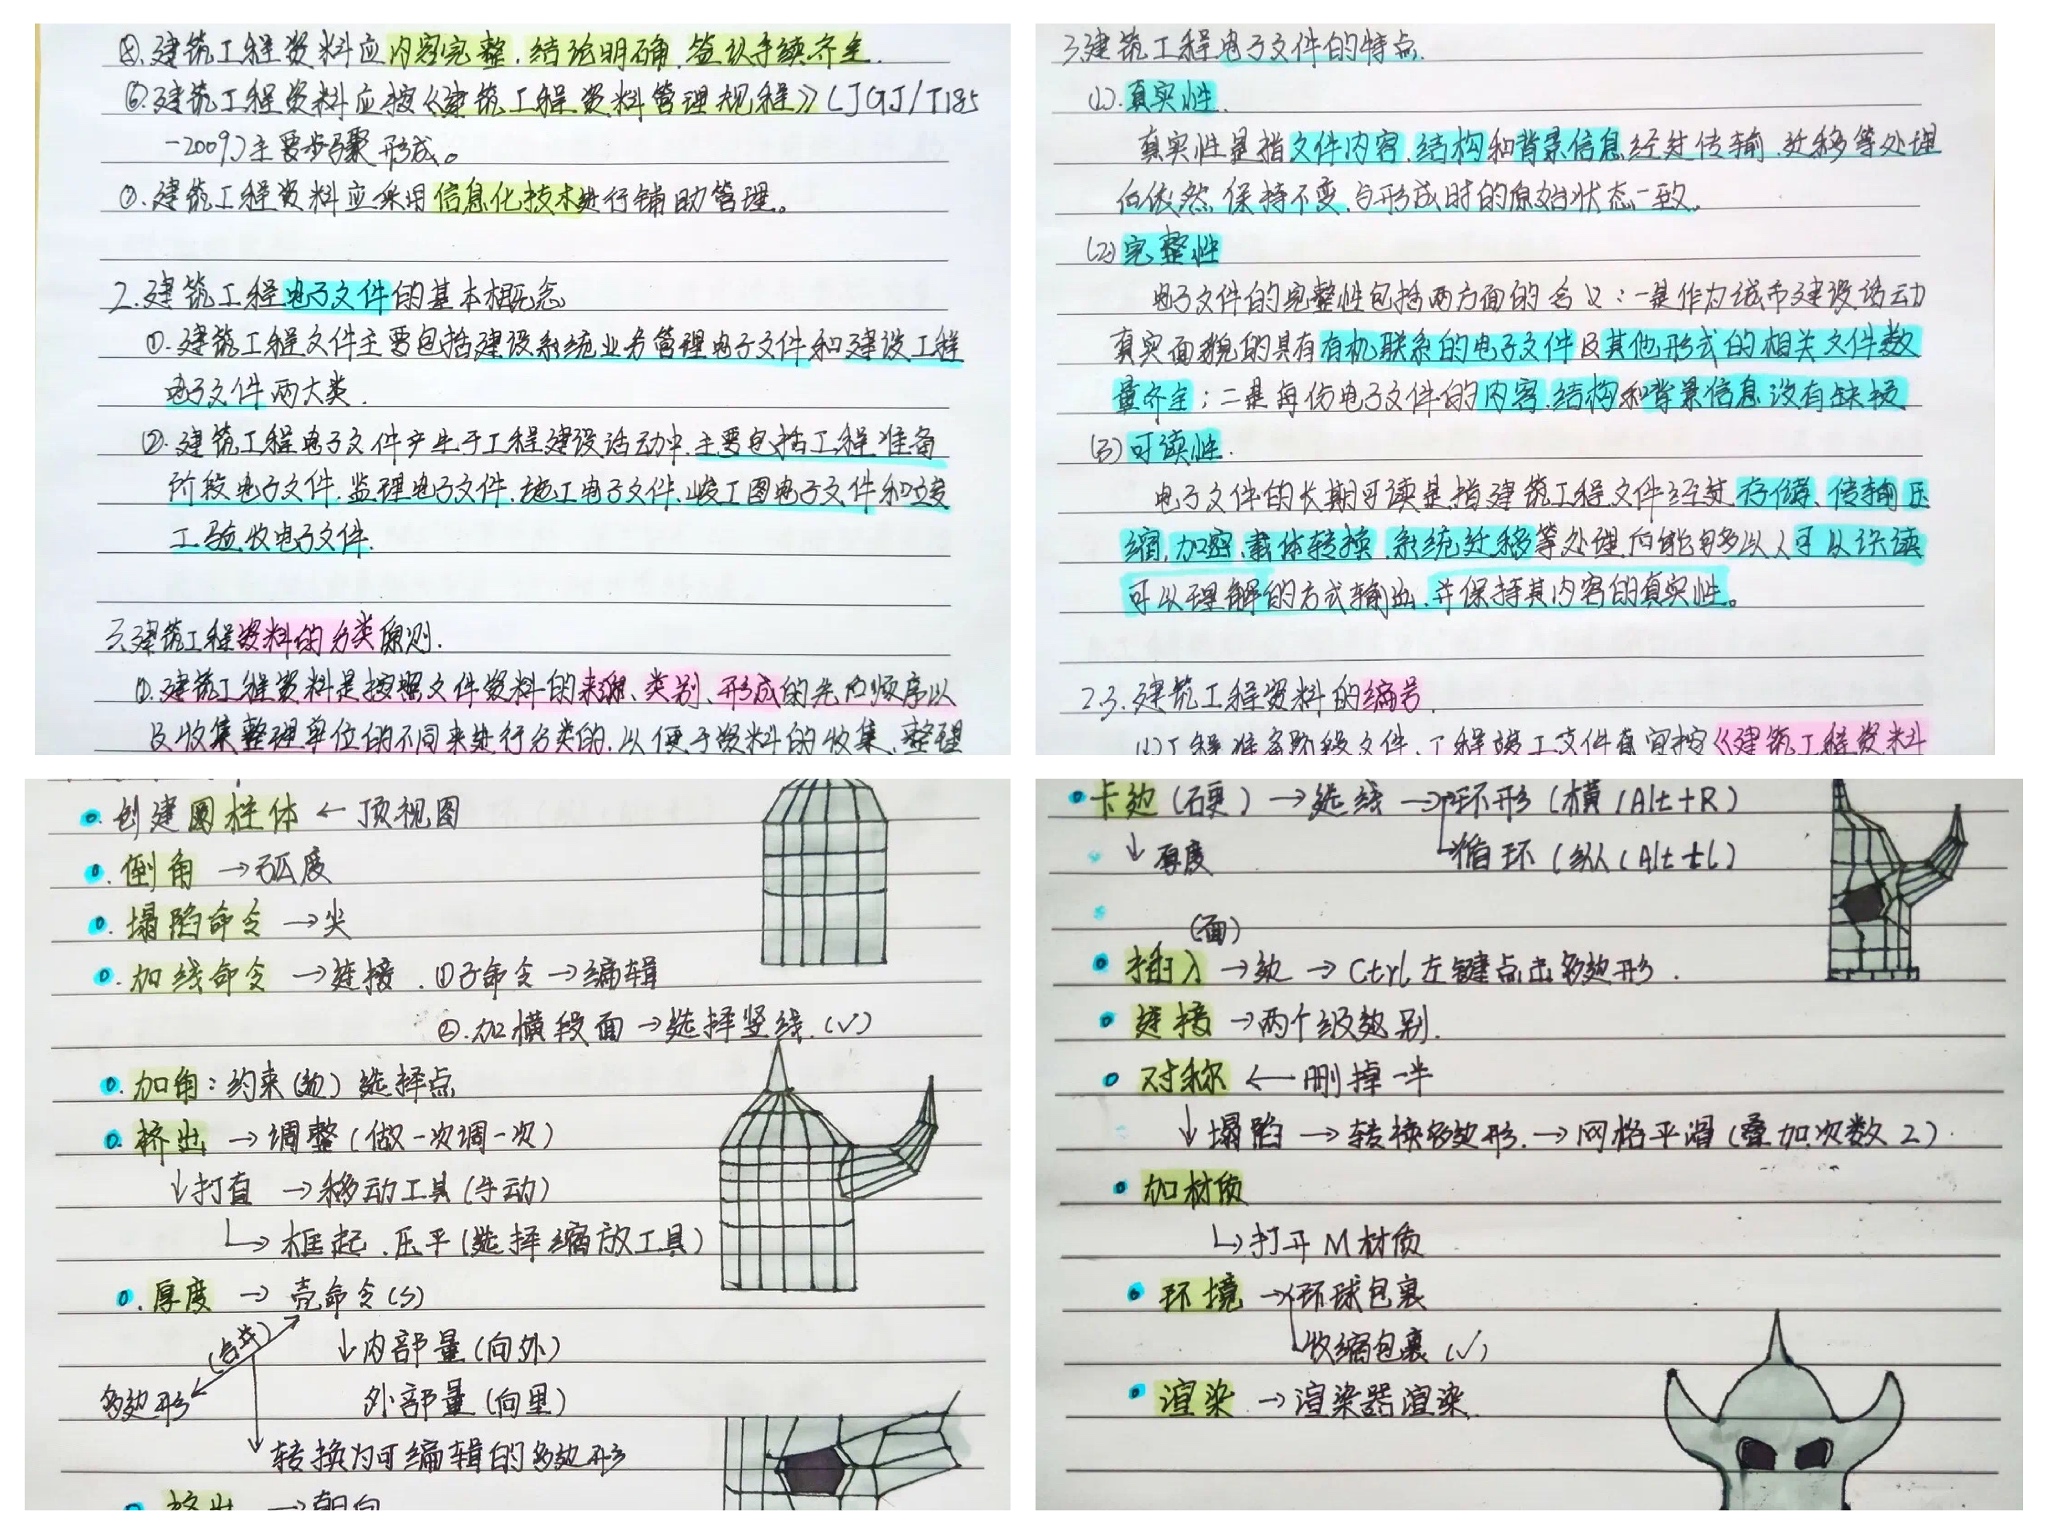 ⑤.建筑工程资料应内容完整、结论明确、签认手续齐全.
⑥.建筑工程资料应按《建筑工程资料管理规程》(JGJ/T185
-2009)主要步骤形成。
⑦.建筑工程资料应采用信息化技术进行辅助管理。
2.建筑工程电子文件的基本概念
①.建筑工程文件主要包括建设系统业务管理电子文件和建设工程
电子文件两大类.
②.建筑工程电子文件产生于工程建设活动中.主要包括工程准备
阶段电子文件、监理电子文件、施工电子文件、竣工图电子文件和竣
工验收电子文件.
三.建筑工程资料的分类原则.
①.建筑工程资料是按照文件资料的来源、类别、形成的先后顺序以
及收集整理单位的不同来进行分类的,以便于资料的收集、整理
3.建筑工程电子文件的特点.
(1).真实性.
真实性是指文件内容、结构和背景信息经过传输、迁移等处理
后依然保持不变,与形成时的原始状态一致。
(2)完整性
电子文件的完整性包括两方面的含义:一是作为城市建设活动
真实面貌的具有有机联系的电子文件及其他形式的相关文件数
量齐全;二是每份电子文件的内容、结构和背景信息没有缺损
(3)可读性.
电子文件的长期可读是指建筑工程文件经过存储、传输、压
缩、加密、载体转换、系统迁移等处理后能够以人可以识读
可以理解的方式输出,并保持其内容的真实性。
2.3.建筑工程资料的编号.
(1)工程准备阶段文件、工程竣工文件宜按《建筑工程资料
创建圆柱体 ← 顶视图
倒角 → 弧度
塌陷命令 → 尖
加线命令 → 连接.①子命令 → 编辑
②.加横段面 → 选择竖线.(√)
加角:约束(边) 选择点
挤出 → 调整(做一次调一次)
↓打直 → 移动工具(手动)
↳ 框起.压平(选择缩放工具)
厚度 → 壳命令(S)
↓内部量(向外)
多边形 外部量(向里)
转换为可编辑的多边形
挤出 → 朝向
卡边(硬) → 选线 → 环形(横(Alt+R)
↓厚度 循环(纵(Alt+L)
(面)
插入 → 边 → Ctrl左键点击多边形.
连接 → 两个级别.
对称 ← 删掉一半
↓塌陷 → 转换多边形.→ 网格平滑(叠加次数2).
加材质
↳打开M材质
环境 → 环球包裹
收缩包裹(√)
渲染 → 渲染器渲染.